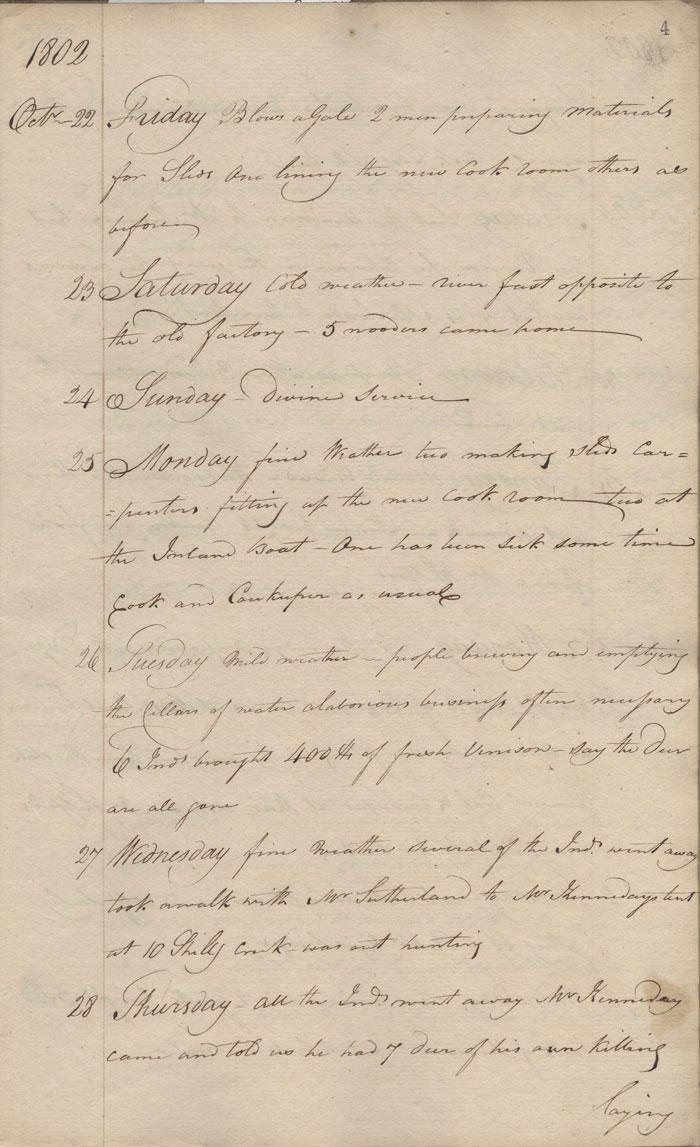 4
1802
Octr 22 Friday Blows a Gale 2 men preparing Materials
for Sleds One lining the new Cook room others as
before
23 Saturday Cold weather - river fast opposite to
the old factory - 5 wooders came home
24 Sunday - Divine Service
25 Monday fine Weather two making Sleds Car=
=penters fitting up the new Cook room two at
the Inland Boat - One has been sick some time
Cook and Cowkeeper as usual
26 Tuesday Mild weather - people brewing and emptying
the Cellars of water a laborious business often necessary
6 Inds brought 400 lb of fresh Venison - say the Deer
are all gone
27 Wednesday fine Weather several of the Inds went away
took a walk with Mr Sutherland to Mr Kennedays tent
at 10 Shilly creek was out hunting
28 Thursday - all the Inds went away Mr Kenneday
came and told us he had 7 deer of his own killing
laying